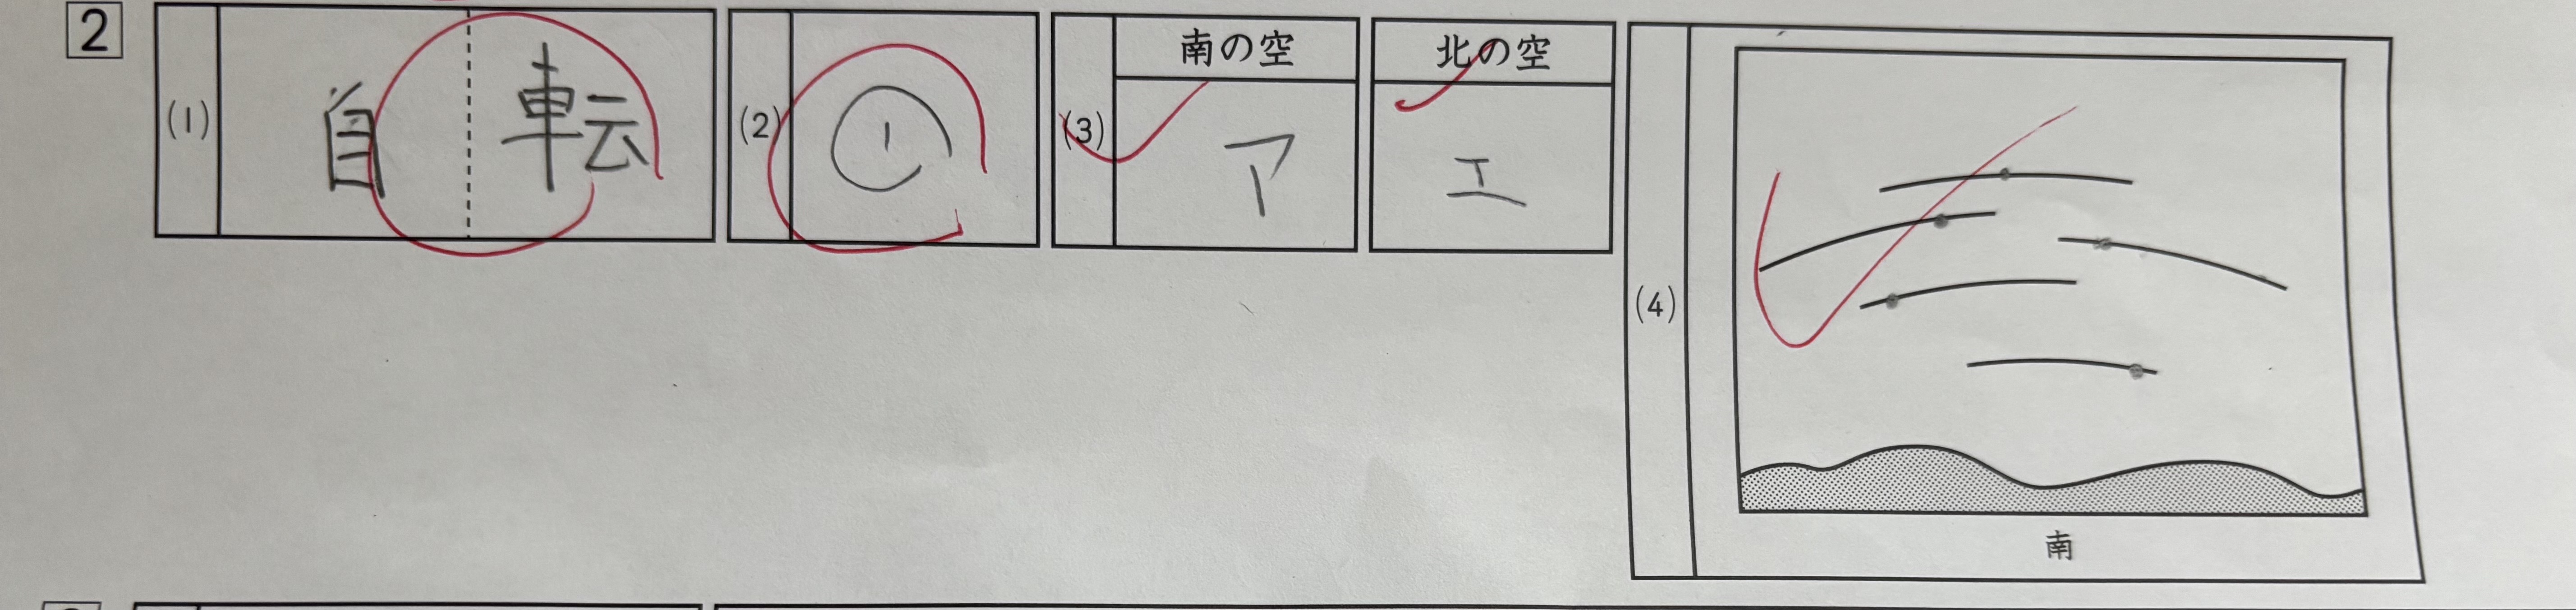 2
(1) 自 転
(2) ①
(3) 南の空 北の空
ア エ
(4)
南